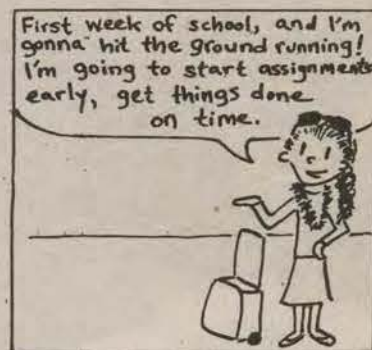 First week of school, and I'm
gonna hit the ground running!
I'm going to start assignments
early, get things done
on time.